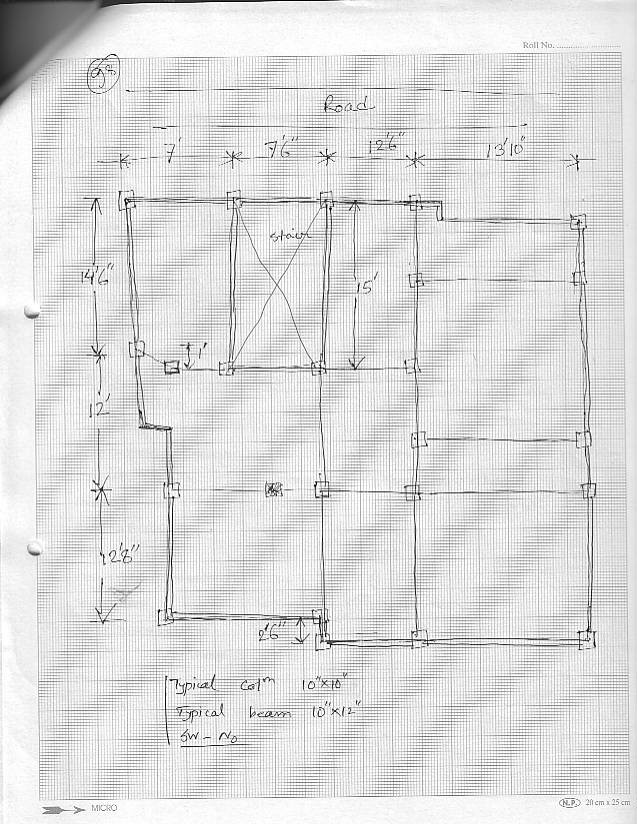 Roll No.
Road
7' 7'6" 12'6" 13'10"
stair
14'6"
15'
1'
12'
12'8"
2'6"
Typical colm 10"x10"
Typical beam 10"x12"
SW - No
MICRO
N.P. 20 cm x 25 cm